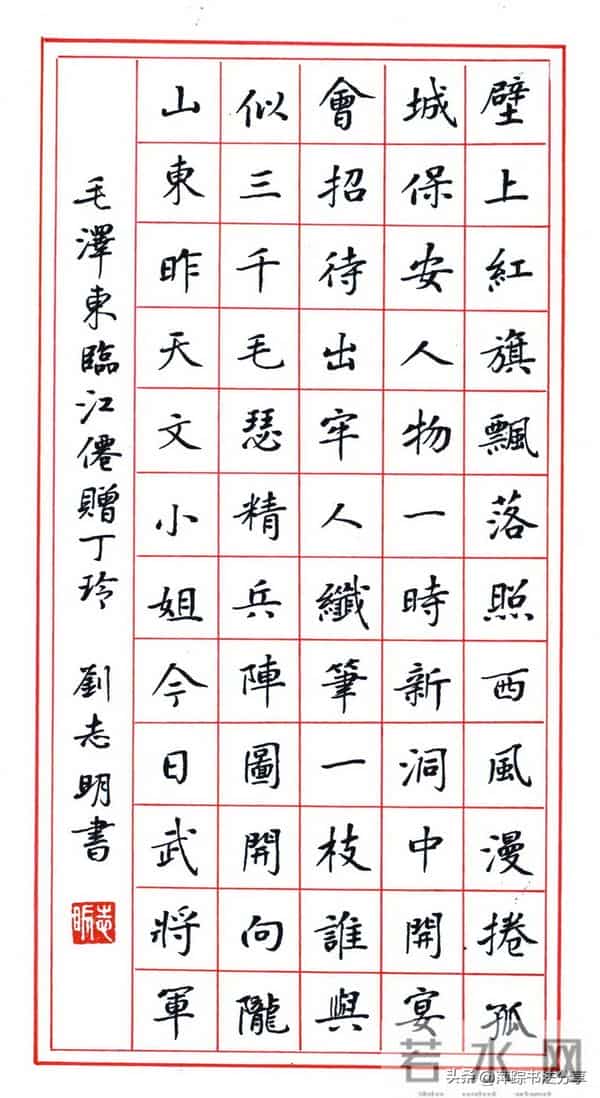 壁上紅旗飄落照西風漫捲孤
城保安人物一時新洞中開宴
會招待出牢人纖筆一枝誰與
似三千毛瑟精兵陣圖開向隴
山東昨天文小姐今日武將軍
毛澤東臨江僊贈丁玲 劉志明書
志眀
若水网
头条@萍踪书法分享